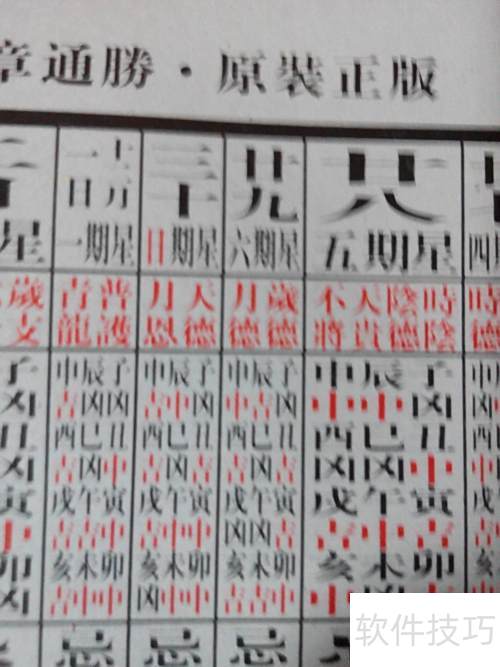 章通勝・原裝正版
四期
時德
廿八
星期五
時陰 陰德 天貴 不將
子辰申
凶中中
丑巳酉
中凶凶
寅午戌
吉中吉
卯未亥
廿九
星期六
歲德 月德
子辰申
凶吉中
丑巳酉
吉凶吉
寅午戌
吉凶凶
卯未亥
中吉吉
忌
三十
星期日
天德 月恩
子辰申
凶中吉
丑巳酉
吉凶吉
寅午戌
中中吉
卯未亥
中中凶
忌
十一月
一日
星期一
普護 青龍
子辰申
凶凶吉
丑巳酉
中凶吉
寅午戌
中吉吉
卯未亥
中中吉
忌
二
星
歲支
子
凶
丑
凶
寅
中
卯
凶
软件技巧